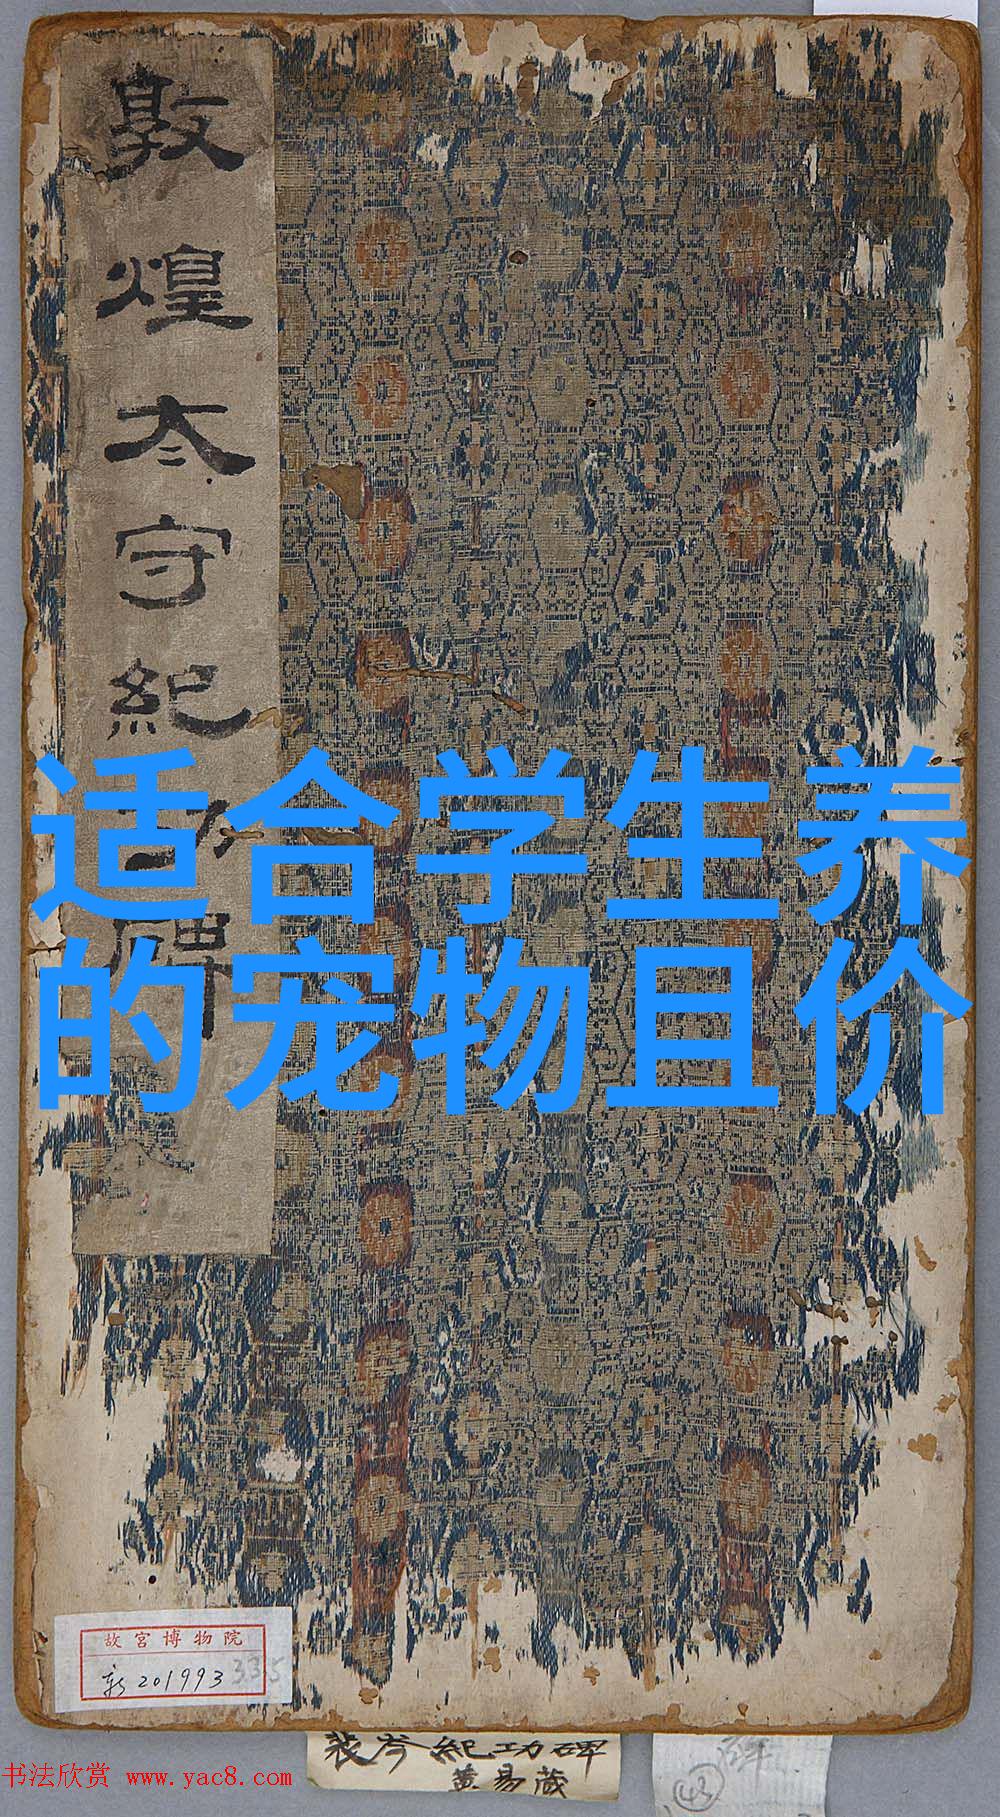 敦煌太守紀功碑
适合学生养
的宠物且价
故宫博物院
新201993
335
裴岑紀功碑
黄易藏
43
书法欣赏 www.yac8.com